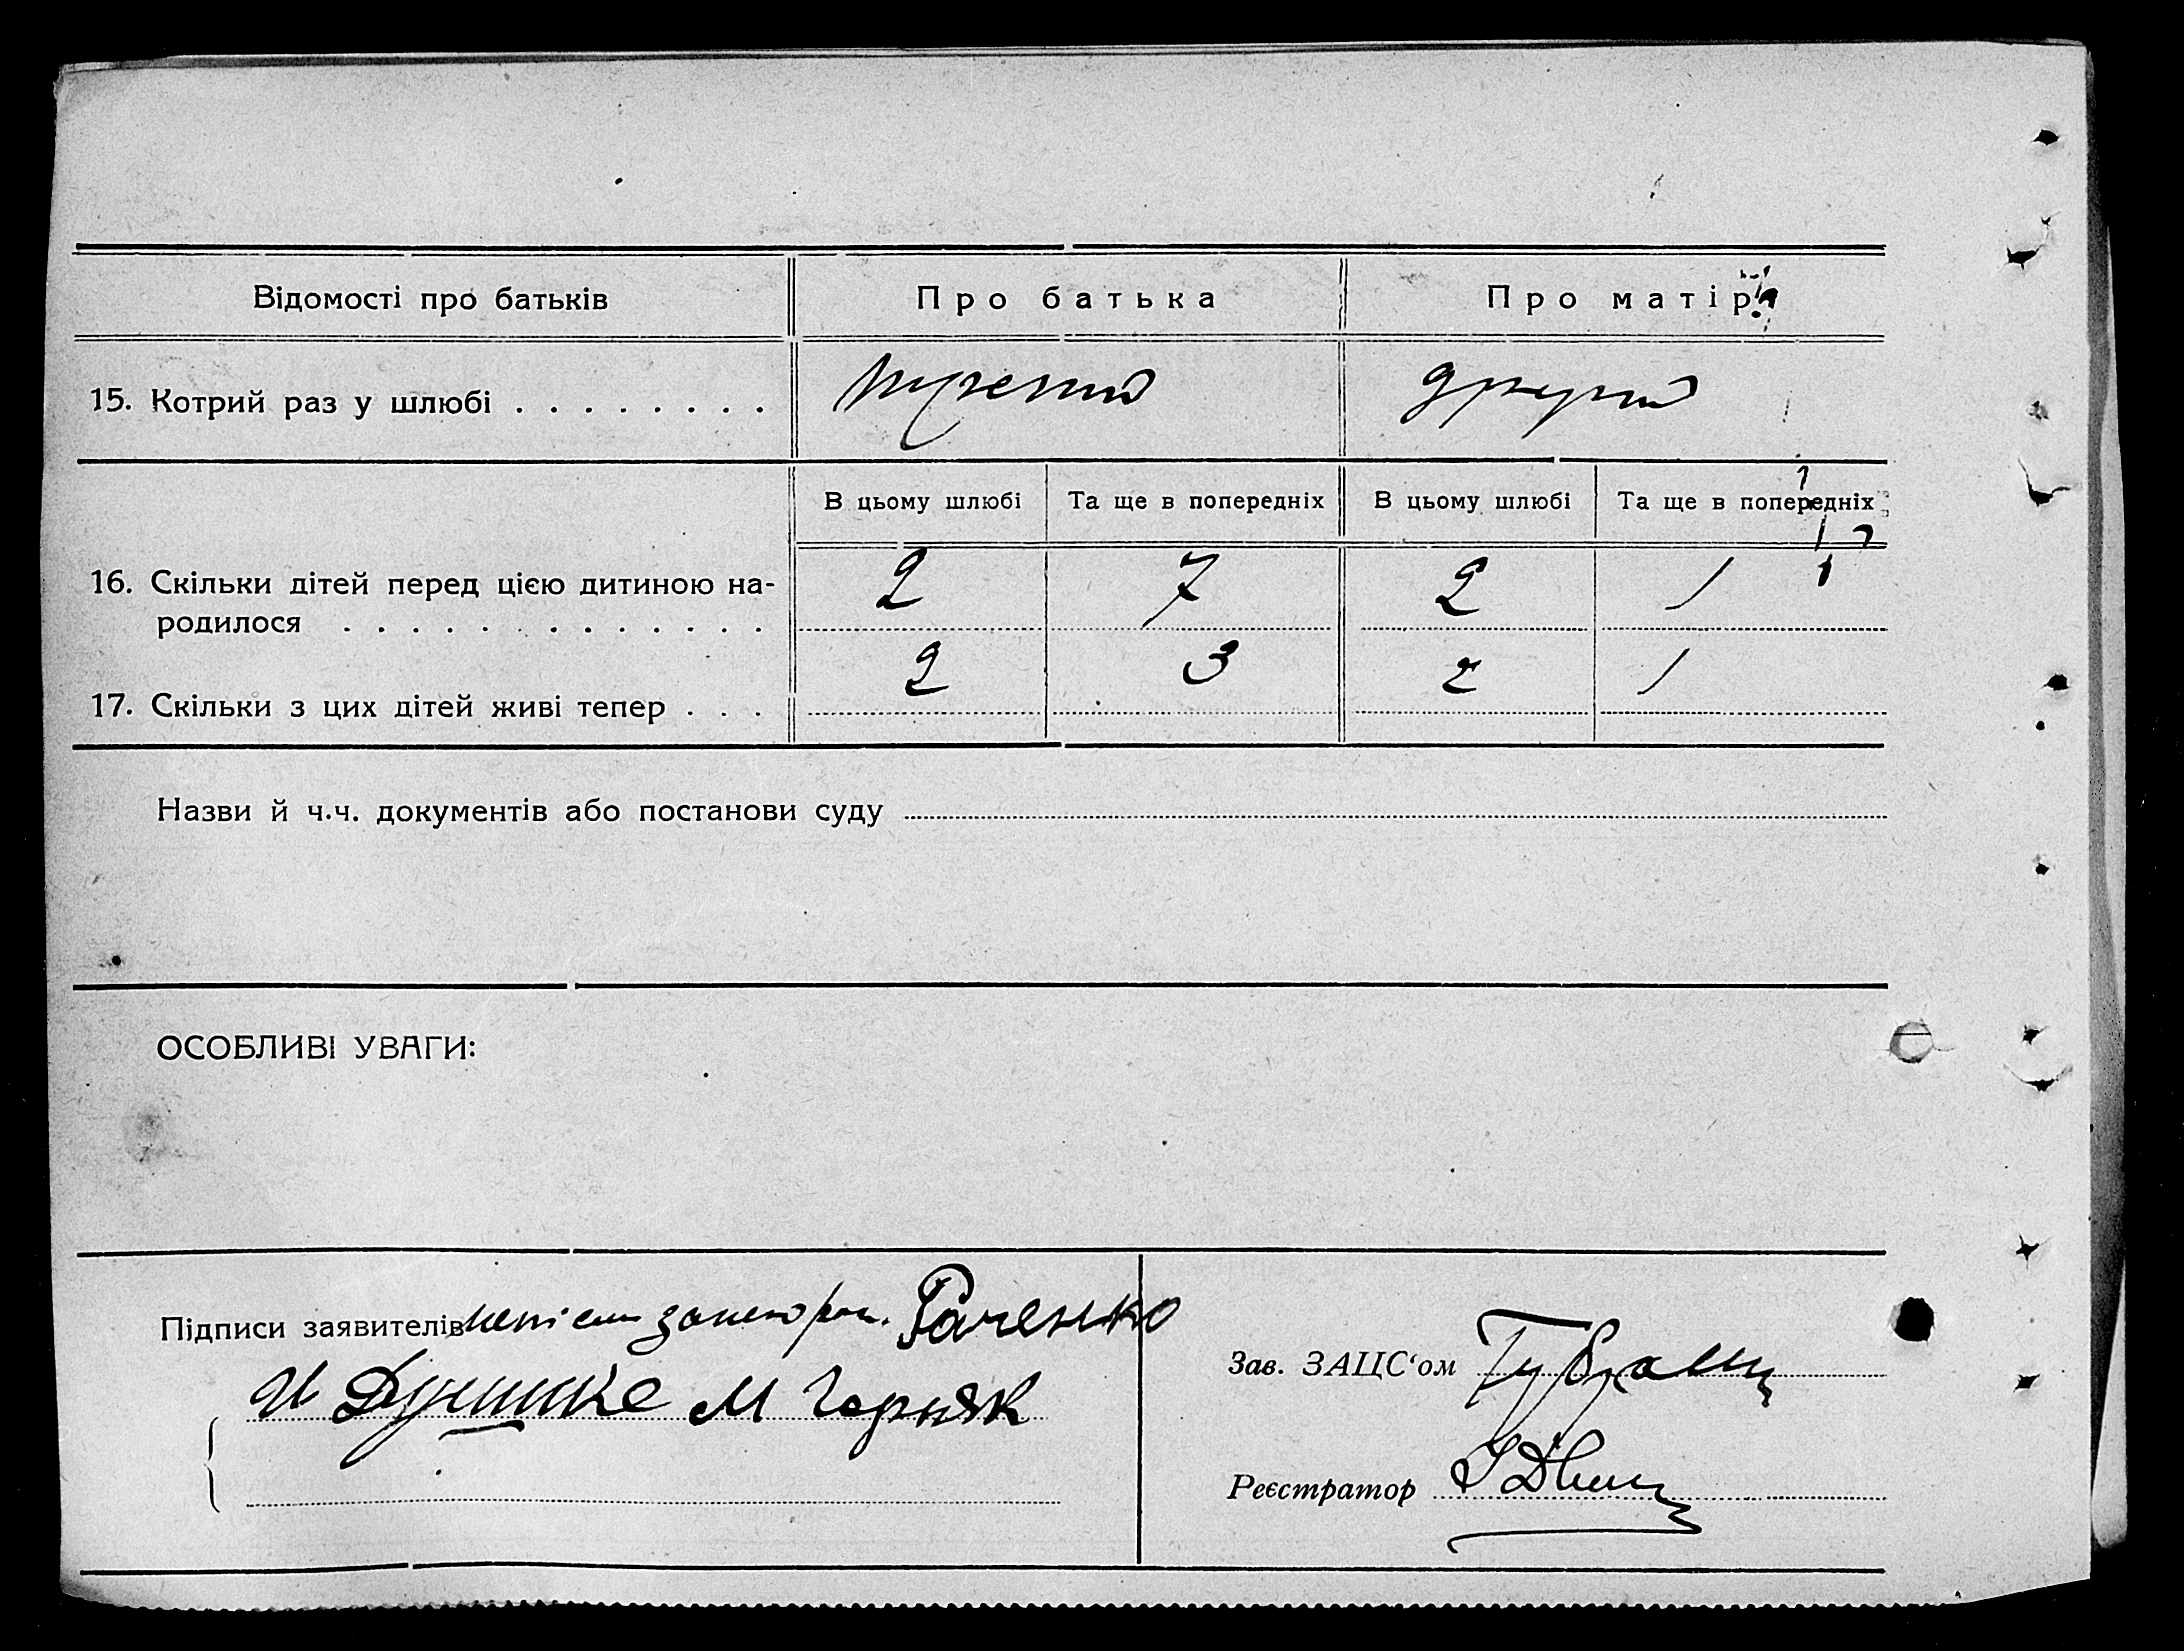 Відомості про батьків Про батька Про матір
15. Котрий раз у шлюбі третий другий
В цьому шлюбі Та ще в попередніх В цьому шлюбі Та ще в попередніх
16. Скільки дітей перед цією дитиною на-
родилося 2 7 2 1
17. Скільки з цих дітей живі тепер 2 3 2 1
Назви й ч.ч. документів або постанови суду
ОСОБЛИВІ УВАГИ:
Підписи заявителів Раченко
М Горняк
Зав. ЗАЦС'ом
Реєстратор